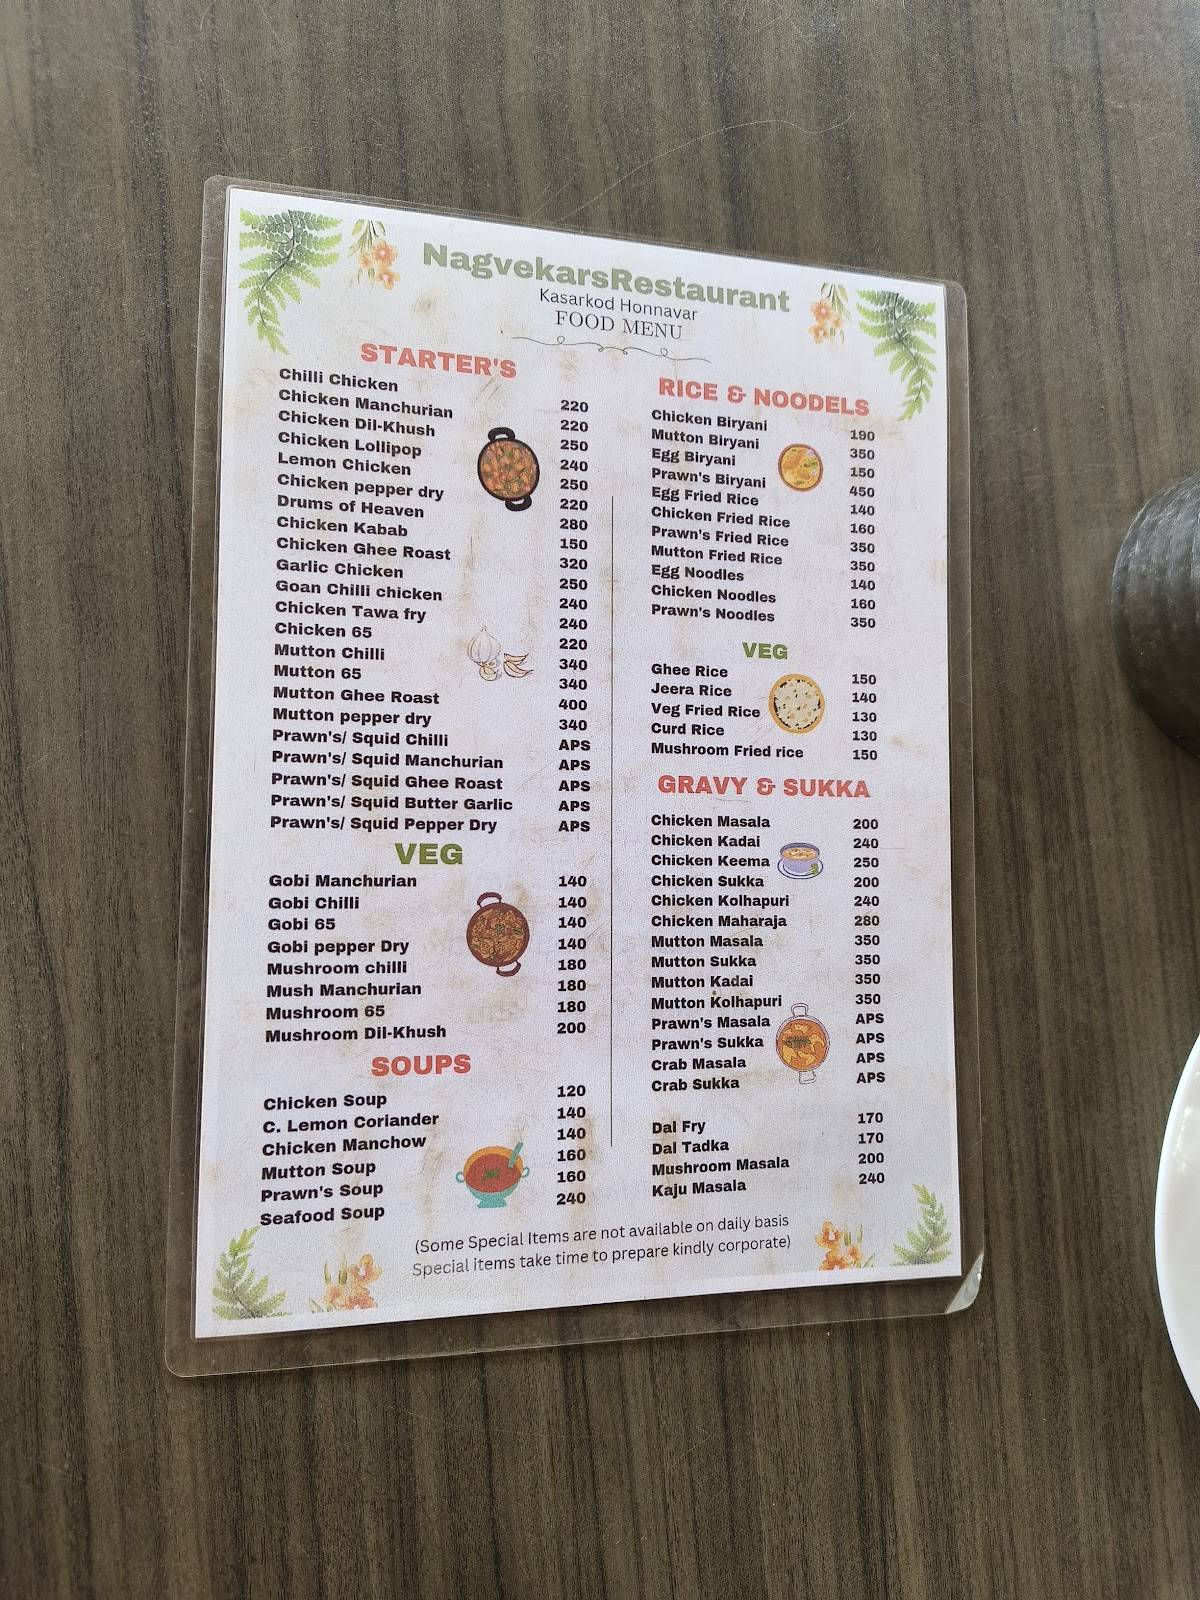 NagvekarsRestaurant
Kasarkod Honnavar
FOOD MENU
STARTER'S
Chilli Chicken 220
Chicken Manchurian 220
Chicken Dil-Khush 250
Chicken Lollipop 240
Lemon Chicken 250
Chicken pepper dry 220
Drums of Heaven 280
Chicken Kabab 150
Chicken Ghee Roast 320
Garlic Chicken 250
Goan Chilli chicken 240
Chicken Tawa fry 240
Chicken 65 220
Mutton Chilli 340
Mutton 65 340
Mutton Ghee Roast 400
Mutton pepper dry 340
Prawn's/ Squid Chilli APS
Prawn's/ Squid Manchurian APS
Prawn's/ Squid Ghee Roast APS
Prawn's/ Squid Butter Garlic APS
Prawn's/ Squid Pepper Dry APS
VEG
Gobi Manchurian 140
Gobi Chilli 140
Gobi 65 140
Gobi pepper Dry 140
Mushroom chilli 180
Mush Manchurian 180
Mushroom 65 180
Mushroom Dil-Khush 200
SOUPS
Chicken Soup 120
C. Lemon Coriander 140
Chicken Manchow 140
Mutton Soup 160
Prawn's Soup 160
Seafood Soup 240
RICE & NOODELS
Chicken Biryani 190
Mutton Biryani 350
Egg Biryani 150
Prawn's Biryani 450
Egg Fried Rice 140
Chicken Fried Rice 160
Prawn's Fried Rice 350
Mutton Fried Rice 350
Egg Noodles 140
Chicken Noodles 160
Prawn's Noodles 350
VEG
Ghee Rice 150
Jeera Rice 140
Veg Fried Rice 130
Curd Rice 130
Mushroom Fried rice 150
GRAVY & SUKKA
Chicken Masala 200
Chicken Kadai 240
Chicken Keema 250
Chicken Sukka 200
Chicken Kolhapuri 240
Chicken Maharaja 280
Mutton Masala 350
Mutton Sukka 350
Mutton Kadai 350
Mutton Kolhapuri 350
Prawn's Masala APS
Prawn's Sukka APS
Crab Masala APS
Crab Sukka APS
Dal Fry 170
Dal Tadka 170
Mushroom Masala 200
Kaju Masala 240
(Some Special Items are not available on daily basis
Special items take time to prepare kindly corporate)